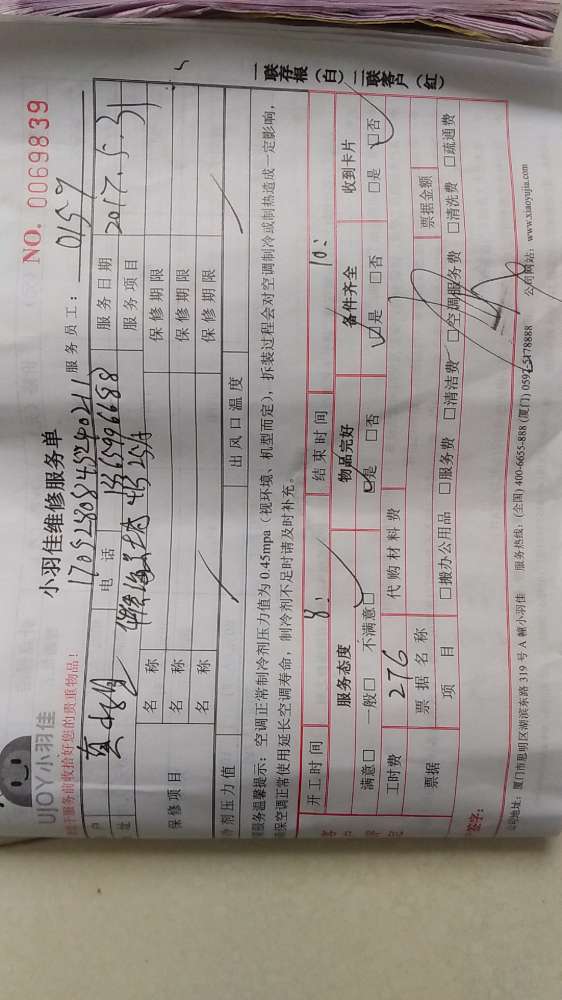 UJOY小羽佳
小羽佳维修服务单
NO. 0069839
服务员工: 0159
服务前收拾好您的贵重物品!
电话 13659996688
服务日期 2017.5.31
服务项目
保修项目
名称 保修期限
名称 保修期限
名称 保修期限
剂压力值 出风口温度
服务温馨提示:空调正常制冷剂压力值为0.45mpa(视环境、机型而定),拆装过程会对空调制冷或制热造成一定影响,
保空调正常使用延长空调寿命,制冷剂不足时请及时补充。
开工时间 8: 结束时间 10:
服务态度 物品完好 备件齐全 收到卡片
满意□ 一般□ 不满意□ □是 □否 □是 □否 □是 □否
工时费 276 代购材料费
票据 票据名称 票据金额
项目 □搬办公用品 □服务费 □清洁费 □空调服务费 □清洗费 □疏通费
签字:
公司地址:厦门市思明区湖滨东路319号A幢小羽佳 服务热线:(全国)400-6655-888 (厦门)0592-5178888 公司网站:www.xiaoyujia.com
一联存根(白)二联客户(红)